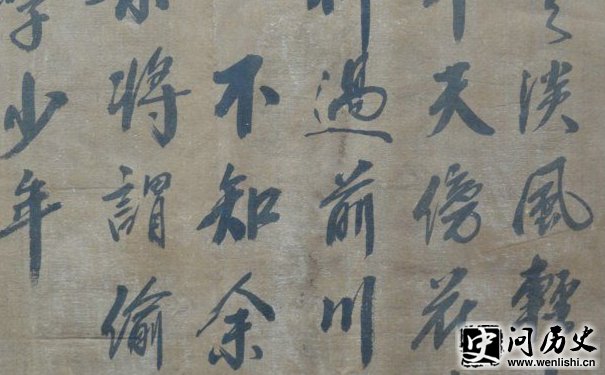 淡風輕
天傍花
過前川
不知余
將謂偷
學少年
问历史
www.wenlishi.cn